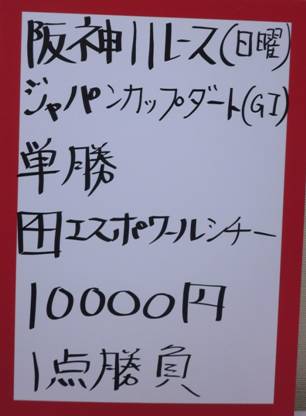 阪神11レース(日曜)
ジャパンカップダート(GI)
単勝
エスポワールシチー
10000円
1点勝負